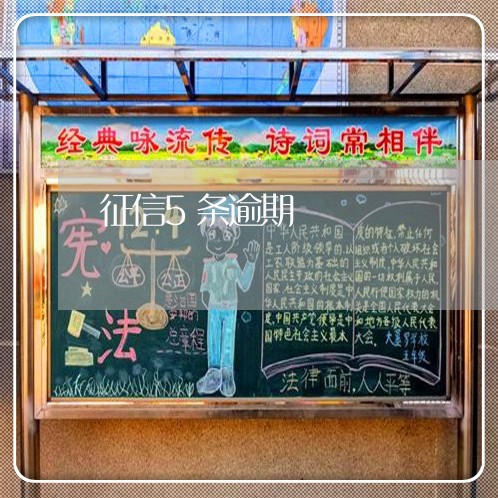 经典咏流传 诗词常相伴
征信5 条逾期
宪法
12.4
公平 公正
总章程
中华人民共和国
是工人阶级领导的,以
工农联盟为基础的
人民民主专政的社会主义
国家,社会主义制度是中
华人民共和国的根本制
度,中国共产党领导是中
国特色社会主义最本
质的特征,禁止任何
组织或者个人破坏社会
主义制度,中华人民共和
国的一切权利属于人民,
人民行使国家权力的机
关是全国人民代表大会
和地方各级人民代表
大会。
五年级
法律面前,人人平等